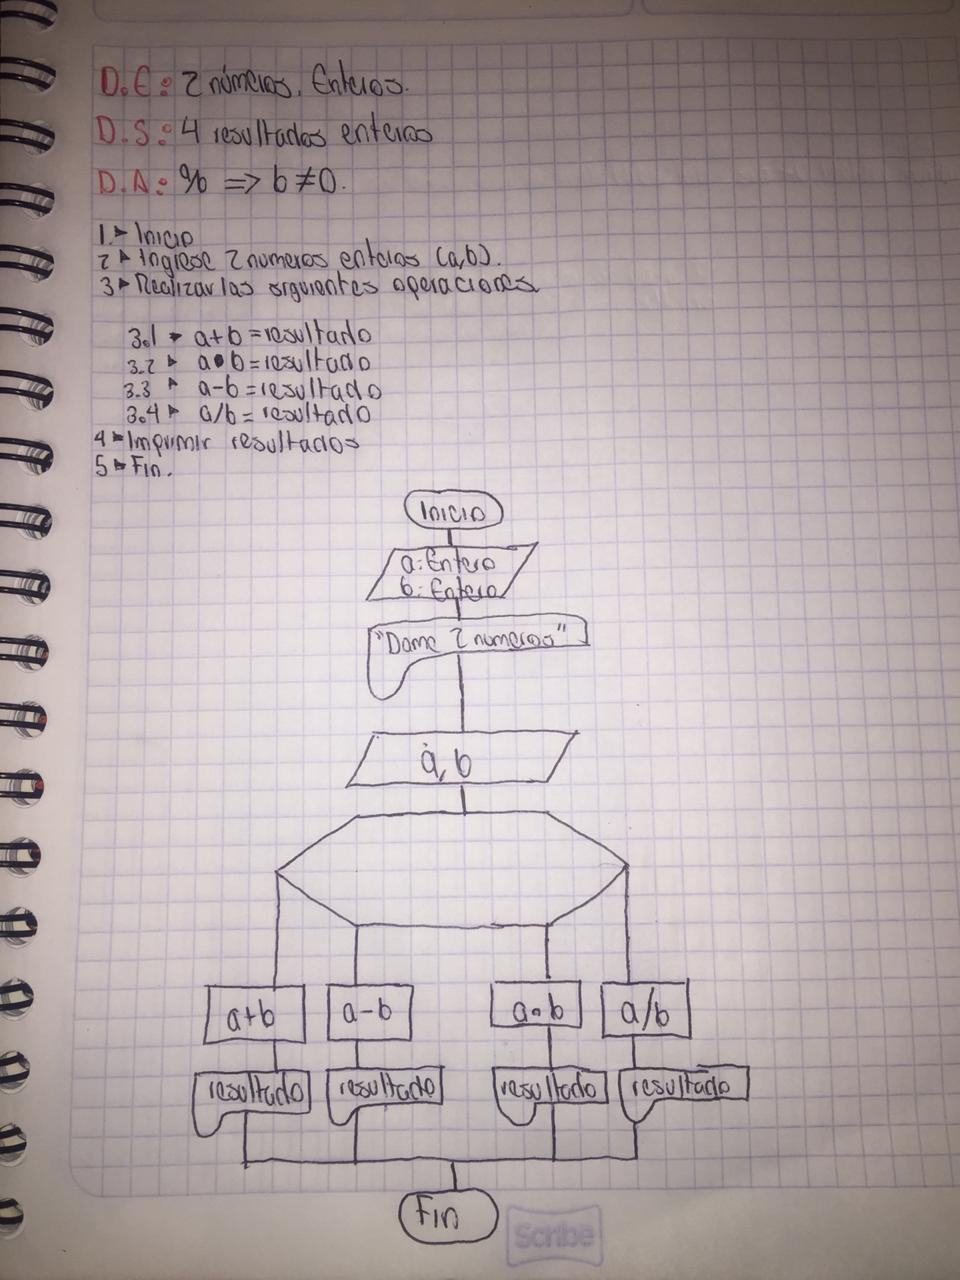 D.E.: 2 números. Enteros.
D.S.: 4 resultados enteros
D.A.: a/b => b≠0.
1.▸ Inicio
2 ▸ Ingrese 2 numeros enteros (a,b).
3 ▸ Realizar las siguientes operaciones
3.1 ▸ a+b = resultado
3.2 ▸ a•b = resultado
3.3 ▸ a-b = resultado
3.4 ▸ a/b = resultado
4 ▸ Imprimir resultados
5 ▸ Fin.
Inicio
a: Entero
b: Entero
"Dame 2 numeros"
a, b
a+b a-b a•b a/b
resultado resultado resultado resultado
Fin
Scribe